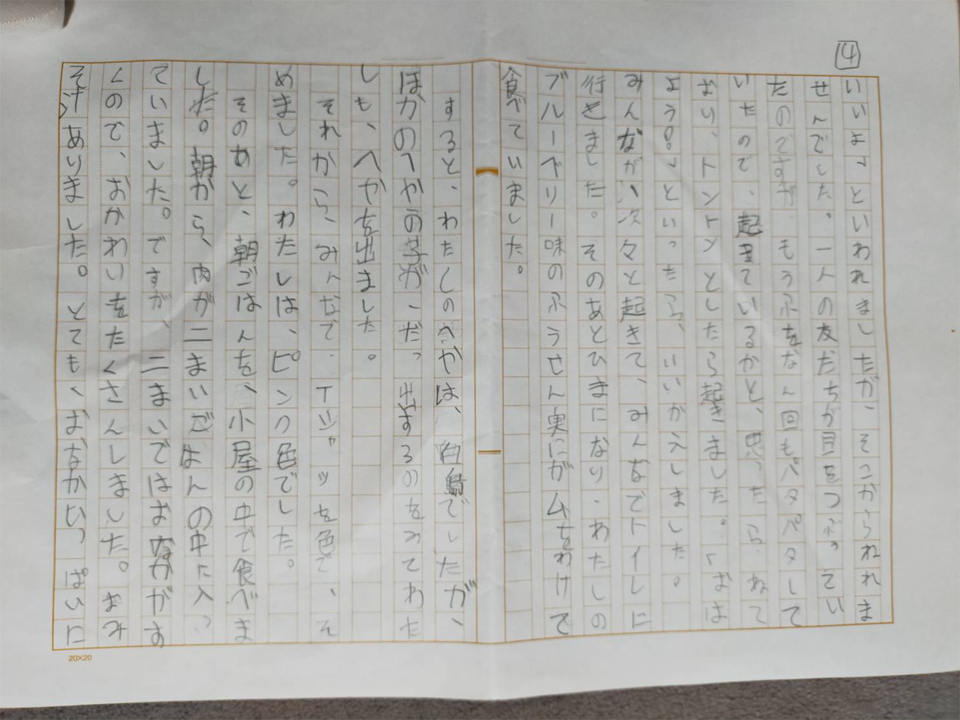 ④
いいよ、といわれましたが、そこからられれま
せんでした。一人の友だちが目をつぶってい
たのですが、もうふをなん回もパタパタして
いたので、起きているかと、思ったら、ねて
おり、トントンとしたら起きました。「おは
よう!」といったら、いいかえしました。
みんなが、次々と起きて、みんなでトイレに
行きました。そのあとひまになり、わたしの
ブルーベリー味のふうせん実にガムをわけて
食べていました。
すると、わたしのへやは、白鳥でしたが、
ほかのへやの子が、だっ出するのをみてわた
しも、へやを出ました。
それから、みんなで、Tシャッツを色で、そ
めました。わたしは、ピンの色でした。
そのあと、朝ごはんを、小屋の中で食べま
した。朝から、肉が二まいごはんの中に入っ
ていました。ですが、二まいではおなかがす
くので、おかわいをたくさんしました。おみ
そけありました。とても、おなかいっぱいに
20×20